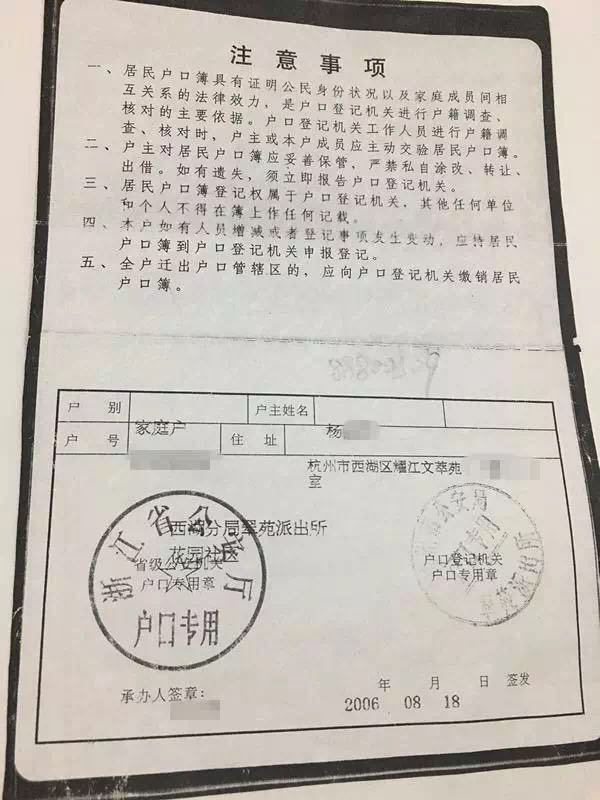 注意事项
一、居民户口簿具有证明公民身份状况以及家庭成员间相
互关系的法律效力，是户口登记机关进行户籍调查、
核对的主要依据。户口登记机关工作人员进行户籍调
查、核对时，户主或本户成员应主动交验居民户口簿。
二、户主对居民户口簿应妥善保管，严禁私自涂改、转让、
出借。如有遗失，须立即报告户口登记机关。
三、居民户口簿登记权属于户口登记机关，其他任何单位
和个人不得在簿上作任何记载。
四、本户如有人员增减或者登记事项发生变动，应持居民
户口簿到户口登记机关申报登记。
五、全户迁出户口管辖区的，应向户口登记机关缴销居民
户口簿。
户别 家庭户 户主姓名 杨
户号 住址 杭州市西湖区耀江文萃苑
室
西湖分局翠苑派出所
花园社区
浙江省公安厅
户口专用
省级公安机关
户口专用章
户口登记机关
户口专用章
承办人签章：
年 月 日 签发
2006 08 18